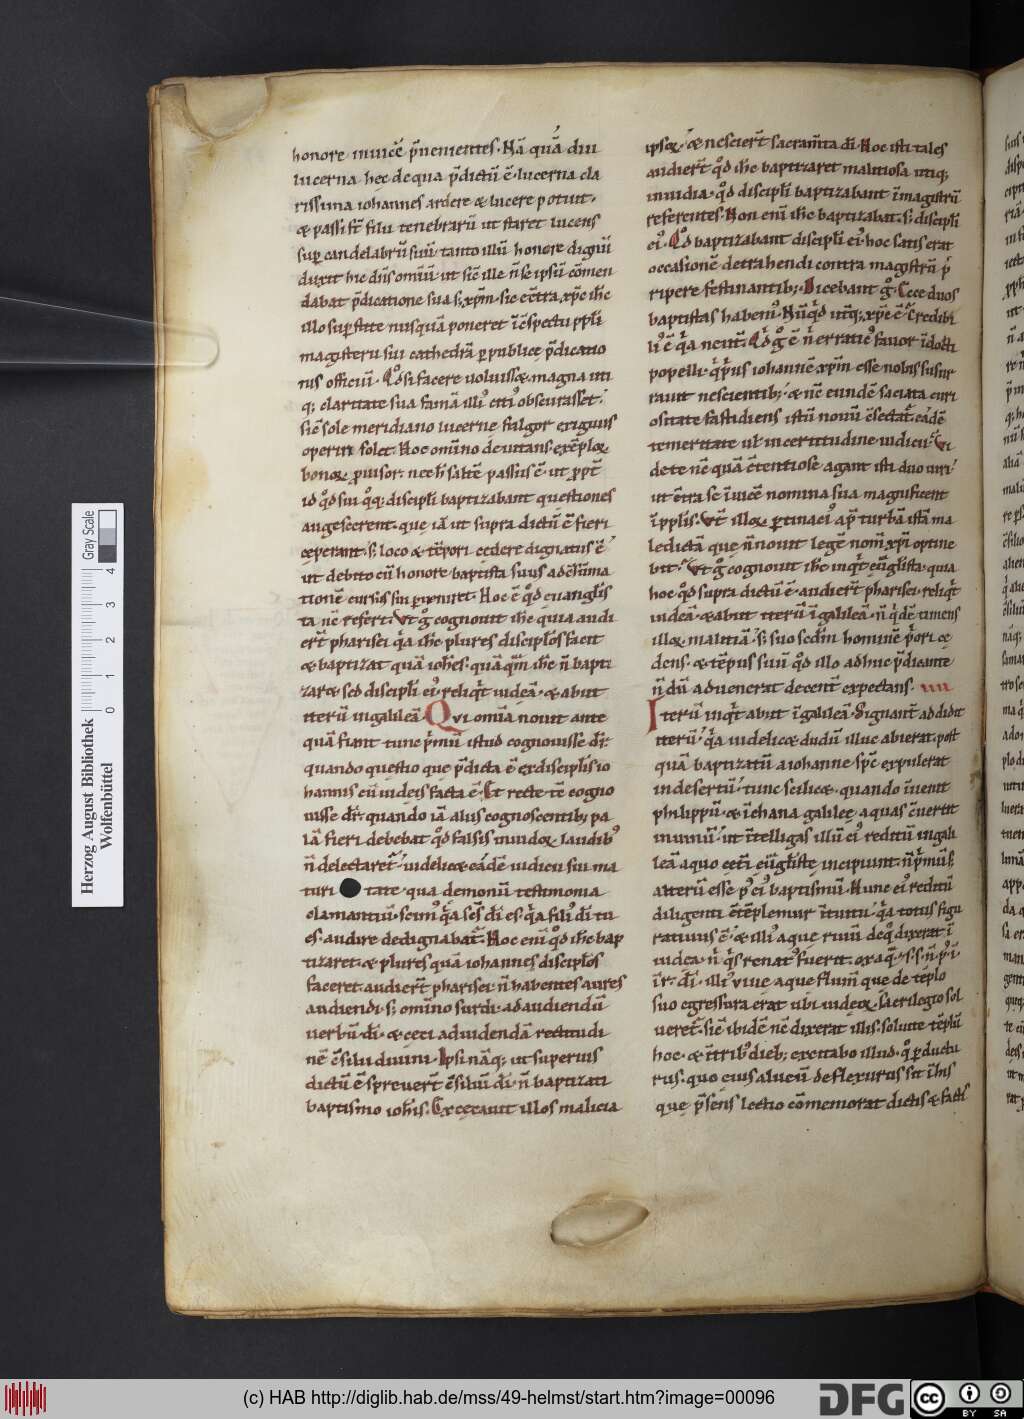 honore inuicē p̄uenientes. Nā quā diu
lucerna hec de qua p̄dictū ē. lucerna cla
rissima iohannes ardere & lucere potuit.
& passi st̄ filii tenebrarū ut staret lucens
sup candelabrū suū. tanto illū honore dignū
duxit hic dn̄s om̄iū. ut sic ille n̄ se ipsū cōmen
dabat p̄dicatione sua s; xp̄m. sic ec̄tra xp̄c ihc̄
illo sup̄stite nusquā poneret ī c̄spectu ppl̄i
magisterii sui cathedrā p̱ publicę p̄dicatio
nis officiū. Qd̄ si facere uoluiss&. magna uti
q; claritate sua famā illi' citi' obscurasset.
sic̄ sole meridiano lucerne fulgor exiguus
operiri solet. Hoc om̄ino deuitans. exēplo
bono puisor. nec h̄ saltē passus ē. ut ppt̄
id qd̄ sui qq; discipl̄i baptizabant questiones
augescerent. que iā ut supra dictū ē fieri
cęperant. s; loco & tēpori cedere dignatus ē
ut debito cū honore baptista suus ad c̄suma
tionē cursus sui p̱ueniret. Hoc ē qd̄ euanglis
ta nc̄ refert. Vt g° cognouit ihc̄ quia audi
ert̄ pharisei qa ihc̄ plures discipl̄os facit
& baptizat quā ioh̄es. quāqm̄ ihc̄ n̄ bapti
zar& sed discipl̄i ei'. reliqt̄ iudeā. & abiit
iterū in galileā. Qvi om̄ia nouit ante
quā fiant tunc p̄mū istud cognouisse dr̄.
quando questio que p̄dicta ē ex discipl̄is io
hannis cū iudeis facta ē. Et recte tc̄ cogno
uisse dr̄. quando iā aliis cognoscentib; pa
lā fieri debebat qd̄ falsis inuido laudib'
n̄ delectaret̄. iudelic& eadē iudicii sui ma
turi tate. qua demoniū testimonia
clamantiū. scim' qa ses di es. qa fili' di tu
es. audire dedignabat̄. Hoc eni qd̄ ihc̄ bap
tizaret. & plures quā iohannes discipl̄os
faceret. audiert̄ pharisei. n̄ habentes aures
audiendi. s; om̄ino surdi. ad audiendū
uerbū di. & ceci ad uidendā rectitudi
nē c̄silii diuini. Ipsi nāq; ut superius
dictū ē spreuert̄ c̄siliū di. n̄ baptizati
baptismo ioh̄is. Excęcauit illos malicia
ipso. & nesciert̄ sacram̄ta di. Hoc isti tales
audiert̄ qd̄ ihc̄ baptizaret malitiosa utiq;
inuidia. qd̄ discipl̄i baptizabant ī magistrū
referentes. Non eni ihc̄ baptizabat. s; discipl̄i
ei'. Qd̄ baptizabant discipl̄i ei'. hoc satis erat
occasionē detrahendi contra magistrū p̄
ripere festinantib;. Dicebant g°. Ecce duos
baptistas habem'. Nūqd̄ utq; xp̄c ē? Credibi
li' ē qa neut̄. Qd̄ g° ē n̄ erratic' fauor īdocti
popelli. qp̄us iohannē xp̄m esse nobis susur
rauit nescientib;. & nc̄ eundē saciata curi
ositate fastidiens istū nouū c̄sectat̄. eadē
temeritate ul' incertitudine iudicii. Vi
dete nc̄ quā c̄tentiose agant isti duo uiri.
ut c̄tra se īuicē nomina sua magnificent
ī ppl̄is. Vt̄ illo p̱tinaci' ap̄ turbā istā ma
ledictā que n̄ nouit legē nom̄ xp̄i optine
bit. Vt g° cognouit ihc̄ inqt̄ euḡlista. quia
hoc qd̄ supra dictū ē. audiert̄ pharisei. reliqt̄
iudeā. & abiit iterū ī galileā. n̄ qdē timens
illo malitiā. s; suo sedm̄ hominē p̄ori ce
dens. & tēpus suū qd̄ illo adhuc p̄dicante
n̄dū aduenerat decent̄ expectans. IIII
Iterū inqt̄ abiit ī galileā. Signant̄ addidit
iterū. qa uidelic& dudū illuc abierat. post
quā baptizatū a iohanne sp̄c expulerat
in desertū. tunc scilic&. quando īuenit
philippū. & ī chana galileę aquas c̄uertit
in uinū. ut ītelligas illū ei' reditū in gali
leā a quo cet̄i euḡlistę incipiunt. n̄ p̄mū. s;
alterū esse p' ei' baptismū. Nunc ei' reditū
diligenti c̄tēplemur ītuitu. qa totus figu
ratiuus ē. & illi' aque riuū de q° dixerat ī
iudea. n̄ qs renat' fuerit. ex aq. & s. s. n. p̄. ī.
īr. di. illi' uiuę aque flum̄ que de tēplo
suo egressura erat ubi iudeo sacrilegio sol
ueret̄. sic̄ ibidē nc̄ dixerat illis. soluite tēplū
hoc. & ī trib' dieb; excitabo illud. q° p̱ductu
rus. quo eius alueū deflexurus sit ī his
que p̄sens lectio cōmemorat dictis & factis
Herzog August Bibliothek
Wolfenbüttel
0 1 2 3 4
Gray Scale
(c) HAB http://diglib.hab.de/mss/49-helmst/start.htm?image=00096
DFG
cc BY SA